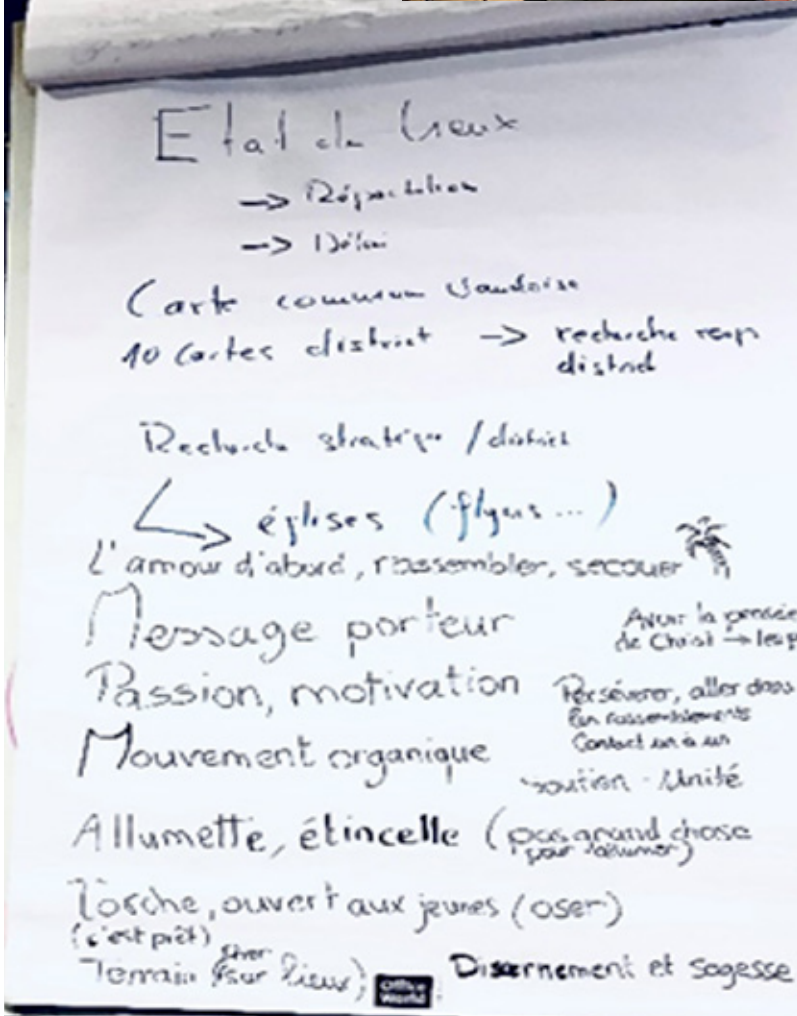 Etat de lieux
-> Répartition
-> Délai
Carte commune Vaudoise
10 Cartes district -> recherche resp
district
Recherche stratégie / district
églises (flyers ...)
L'amour d'abord, rassembler, secouer
Message porteur
Avoir la pensée
de Christ ->
Passion, motivation
Persévérer, aller dans
rassemblements
Contact un à un
Mouvement organique
soutien - Unité
Allumette, étincelle (pas grand chose
pour l'allumer)
Torche, ouvert aux jeunes (oser)
(c'est prêt)
Terrain (sur lieux)
Discernement et sagesse
Office
World